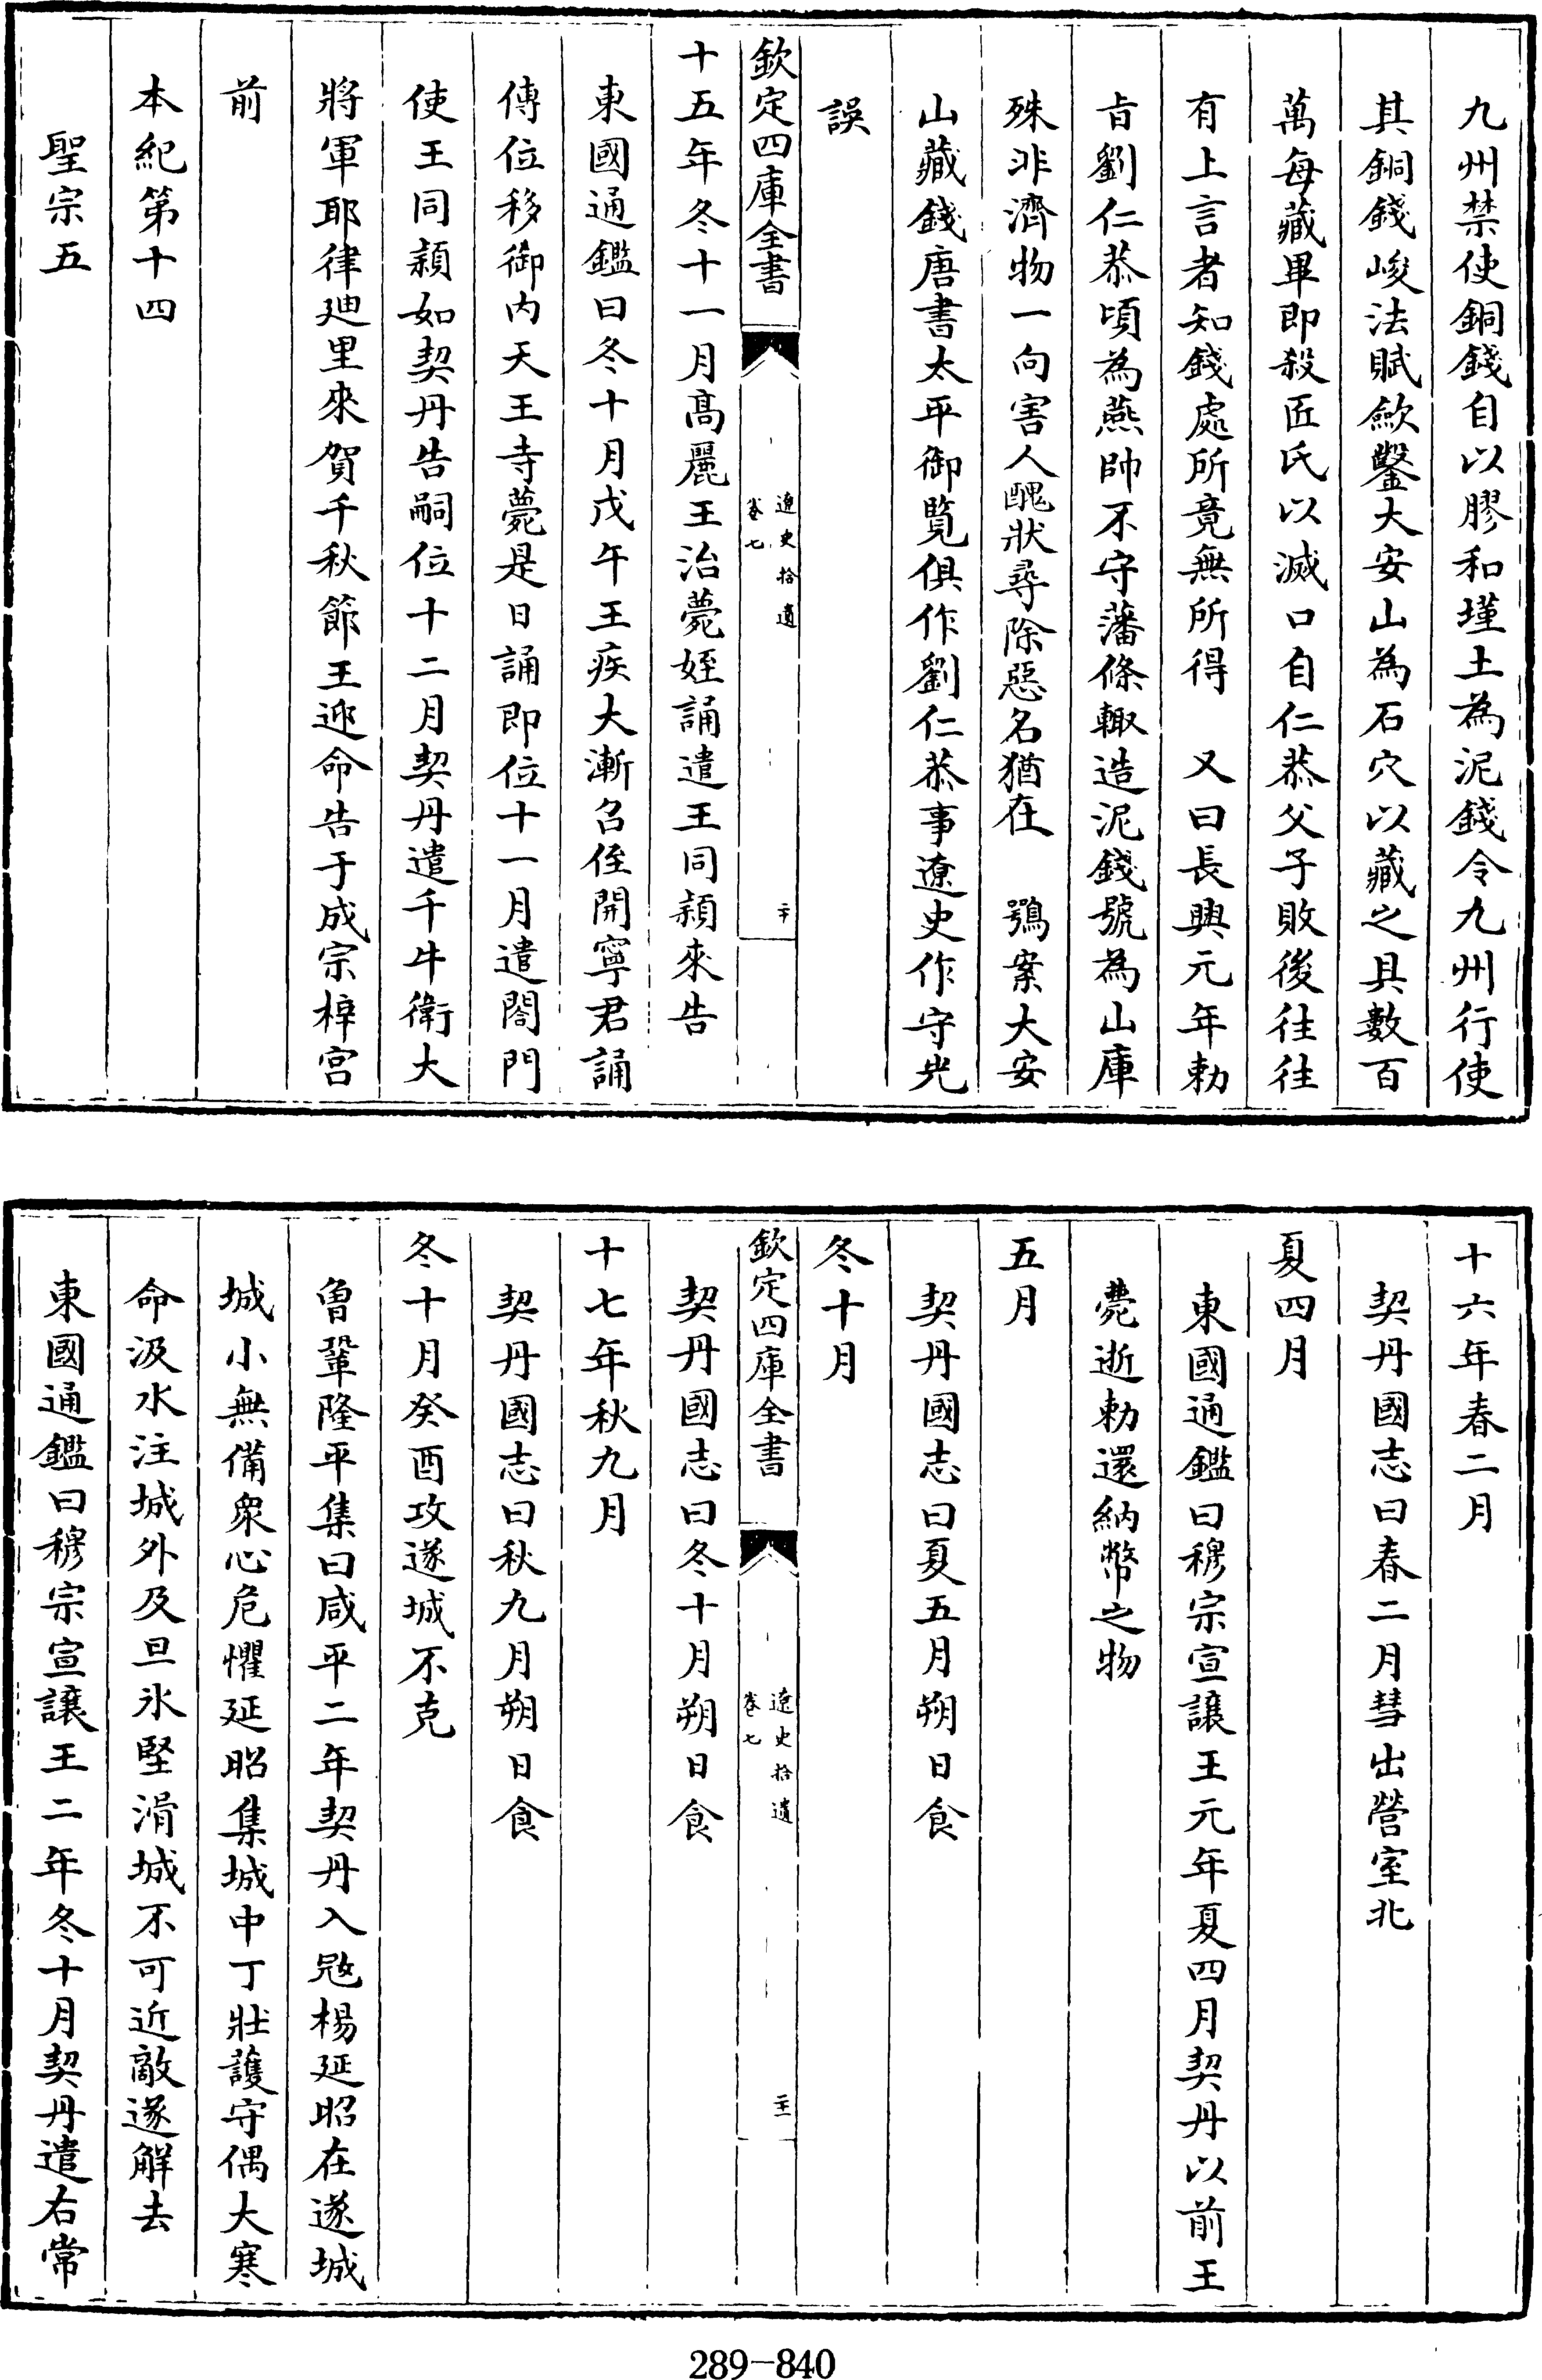 九州禁使銅錢自以膠和墐土為泥錢令九州行使
其銅錢峻法賦歛鑿大安山為石穴以藏之具數百
萬每藏畢即殺匠氏以滅口自仁恭父子敗後往往
有上言者知錢處所竟無所得　又曰長興元年勅
旨劉仁恭頃為燕帥不守藩條輙造泥錢號為山庫
殊非濟物一向害人醜狀尋除惡名猶在　鶚案大安
山藏錢唐書太平御覽俱作劉仁恭事遼史作守光
誤
欽定四庫全書
遼史拾遺
卷七
二十
十五年冬十一月髙麗王治薨姪誦遣王同潁來告
東國通鑑曰冬十月戊午王疾大漸召侄開寧君誦
傳位移御内天王寺薨是日誦即位十一月遣閤門
使王同潁如契丹告嗣位十二月契丹遣千牛衛大
將軍耶律廸里來賀千秋節王迎命告于成宗梓宮
前
本紀第十四
聖宗五
十六年春二月
契丹國志曰春二月彗出營室北
夏四月
東國通鑑曰穆宗宣讓王元年夏四月契丹以前王
薨逝勅還納幣之物
五月
契丹國志曰夏五月朔日食
冬十月
欽定四庫全書
遼史拾遺
卷七
二十一
契丹國志曰冬十月朔日食
十七年秋九月
契丹國志曰秋九月朔日食
冬十月癸酉攻遂城不克
曾鞏隆平集曰咸平二年契丹入㓂楊延昭在遂城
城小無備衆心危懼延昭集城中丁壯護守偶大寒
命汲水注城外及旦氷堅滑城不可近敵遂解去
東國通鑑曰穆宗宣讓王二年冬十月契丹遣右常
289-840